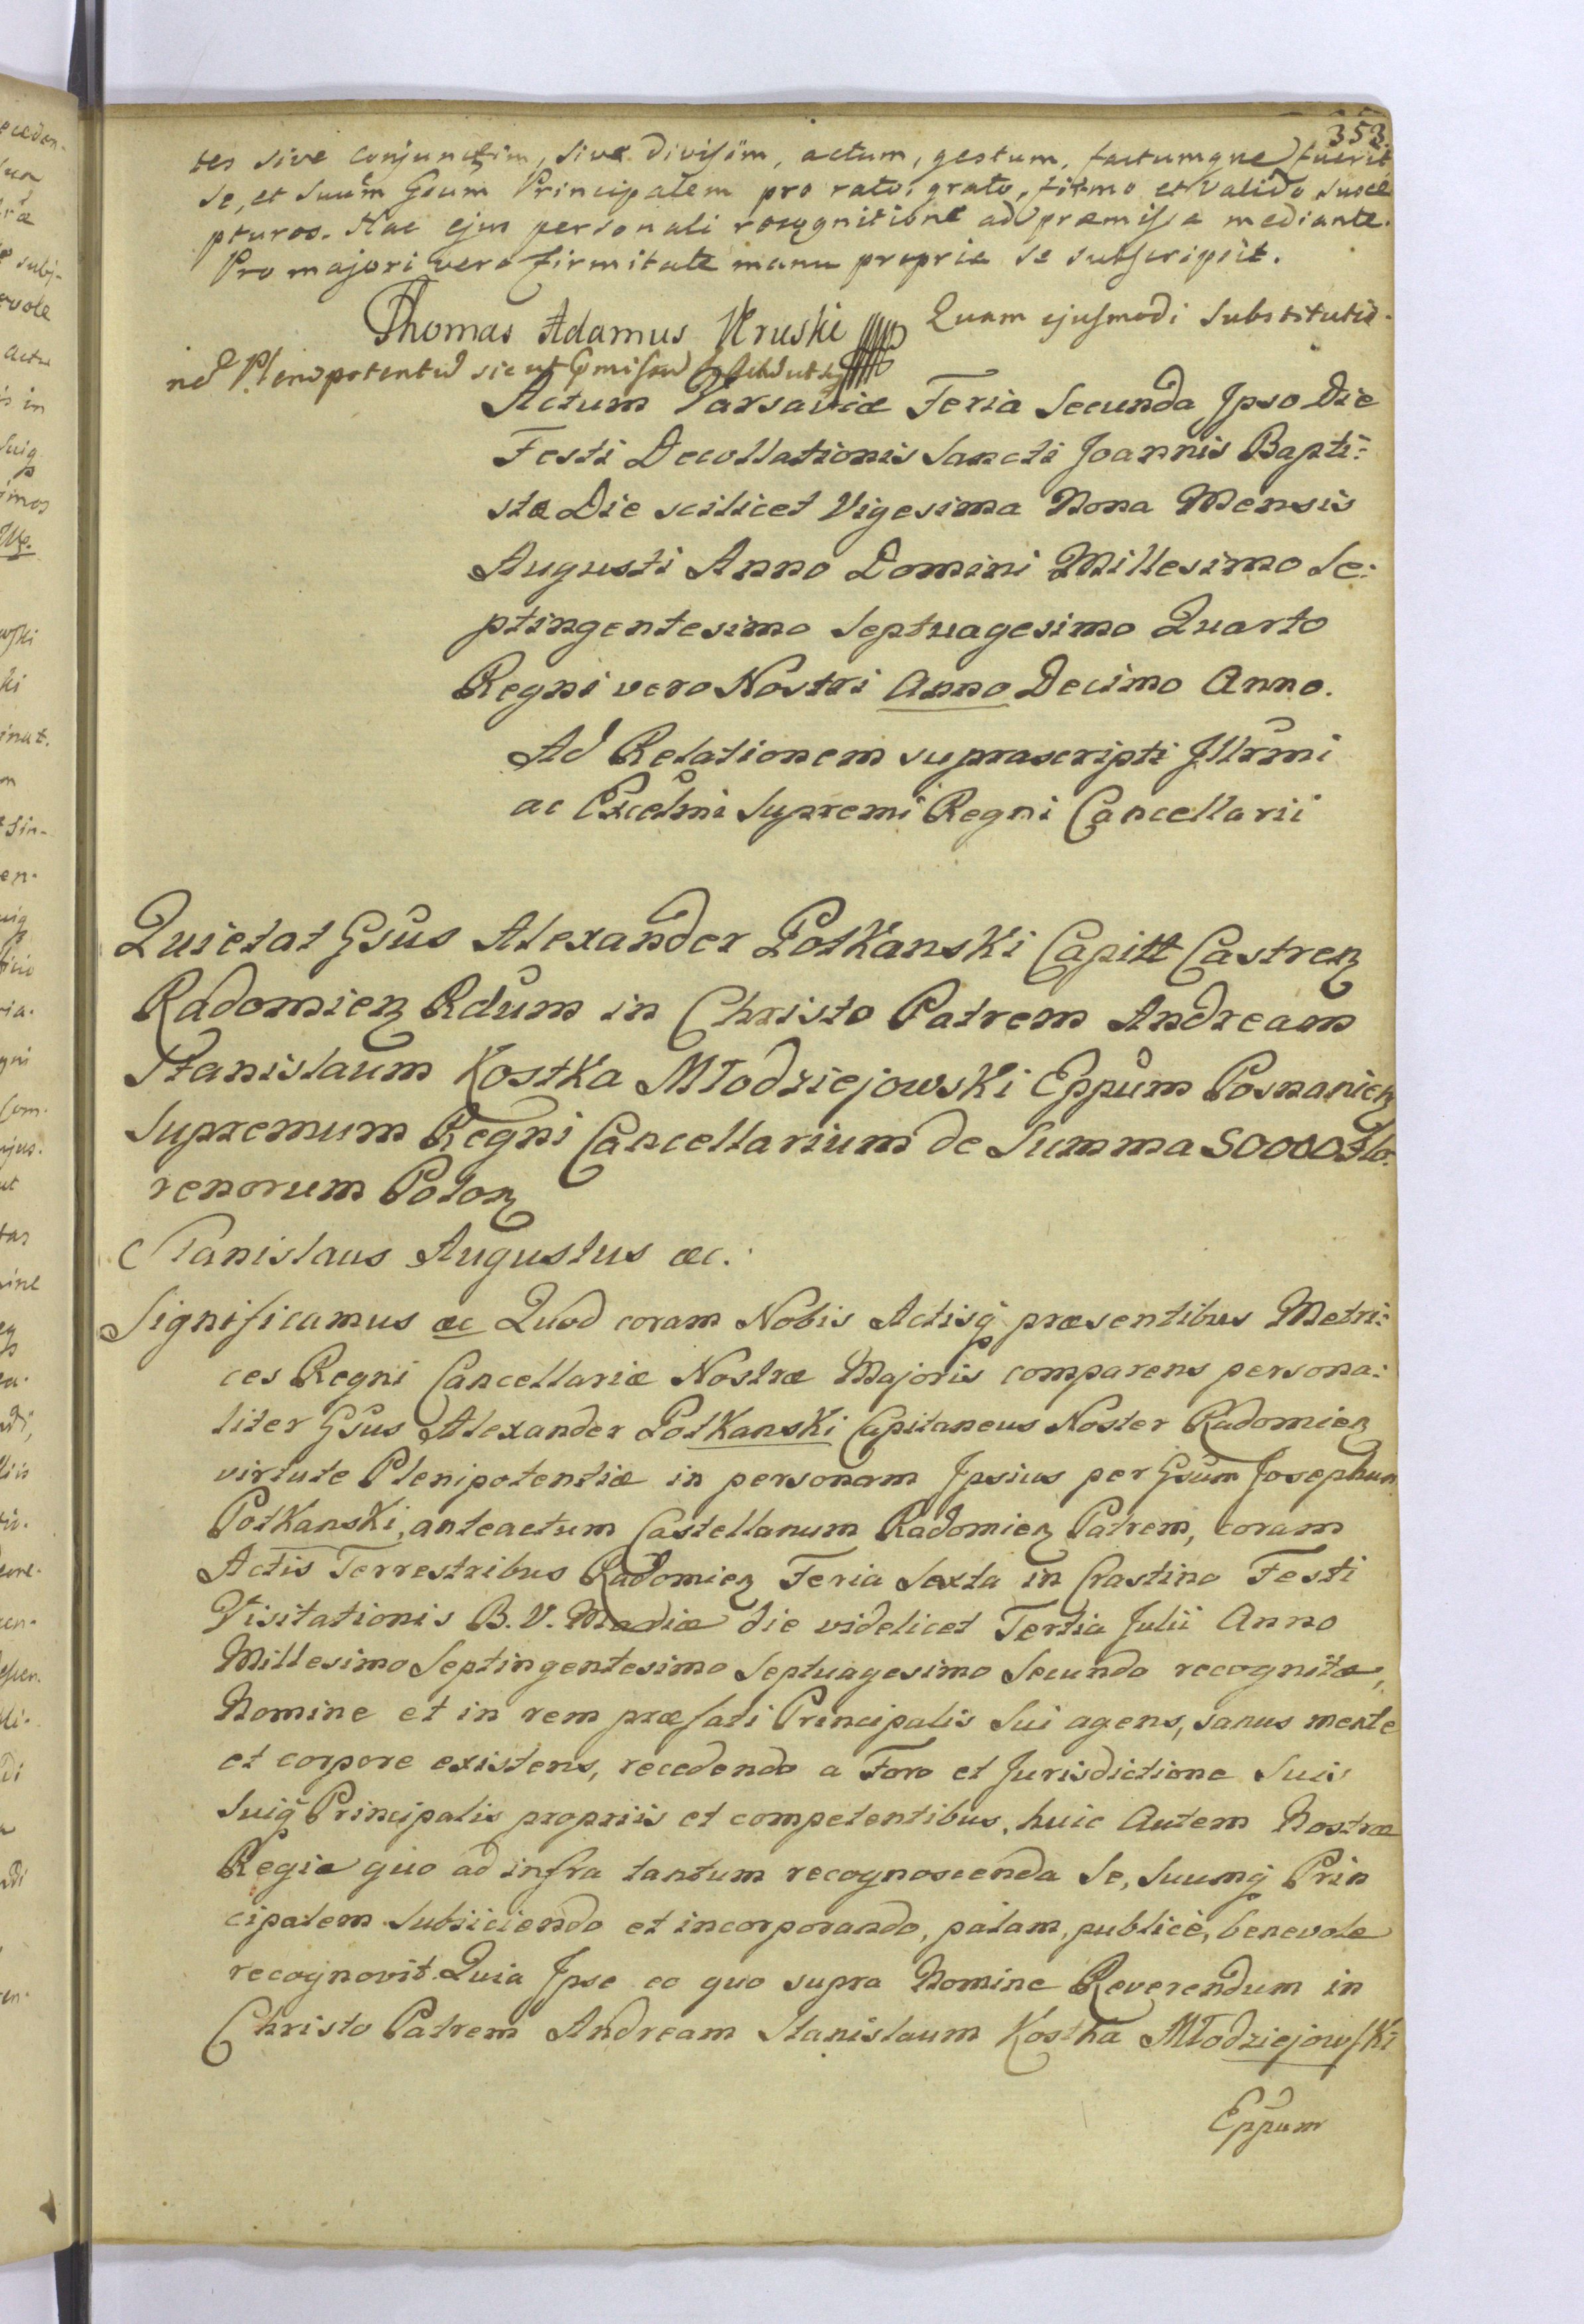 353.
tes sive conjunctim, sive divisim, actum, gestum, factumque fuerit
se, et suum Gsum Principalem pro rato, grato, firmo et valido susce
pturos. Hac ejus personali recognitione ad præmissa mediante.
Pro majori vero firmitate manu propria se subscripsit.
Thomas Adamus Kruski Quam ejusmodi Substitutio-
Actum Varsaviæ Feria Secunda Ipso Die
Festi Decollationis Sancti Joannis Bapti:
stæ Die scilicet Vigesima Nona Mensis
Augusti Anno Domini Millesimo Se:
ptingentesimo Septuagesimo Quarto
Regni vero Nostri Anno Decimo Anno.
Ad Relationem suprascripti Illrmi
ac Excelmi Supremi Regni Cancellarii
Quietat Gsus Alexander Potkanski Capitt Castren
Radomien Rdum in Christo Patrem Andream
Stanislaum Kostka Młodziejowski Eppum Posnanien
Supremum Regni Cancellarium de Summa 50000 Flo
renorum Polon
Stanislaus Augustus æc.
Significamus æc Quod coram Nobis Actisq præsentibus Metri:
ces Regni Cancellariæ Nostræ Majoris comparens persona:
liter Gsus Alexander Potkanski Capitaneus Noster Radomien
virtute Plenipotentiæ in personam Ipsius per Gsum Josephum
Potkanski, anteactum Castellanum Radomien Patrem, coram
Actis Terrestribus Radomien Feria Sexta in Crastino Festi
Visitationis B. V. Mariæ die videlicet Tertia Julii Anno
Millesimo Septingentesimo Septuagesimo Secundo recognitæ,
Nomine et in rem præfati Principalis Sui agens, sanus mente
et corpore existens, recedendo a Foro et Jurisdictione Suis
Suiq Principalis propriis et competentibus, huic Autem Nostræ
Regiæ quo ad infra tantum recognoscenda Se, Suumq Prin
cipalem subiiciendo et incorporando, palam, publicè, benevole
recognovit Quia Ipse eo quo supra Nomine Reverendum in
Christo Patrem Andream Stanislaum Kostka Młodziejowski
Eppum